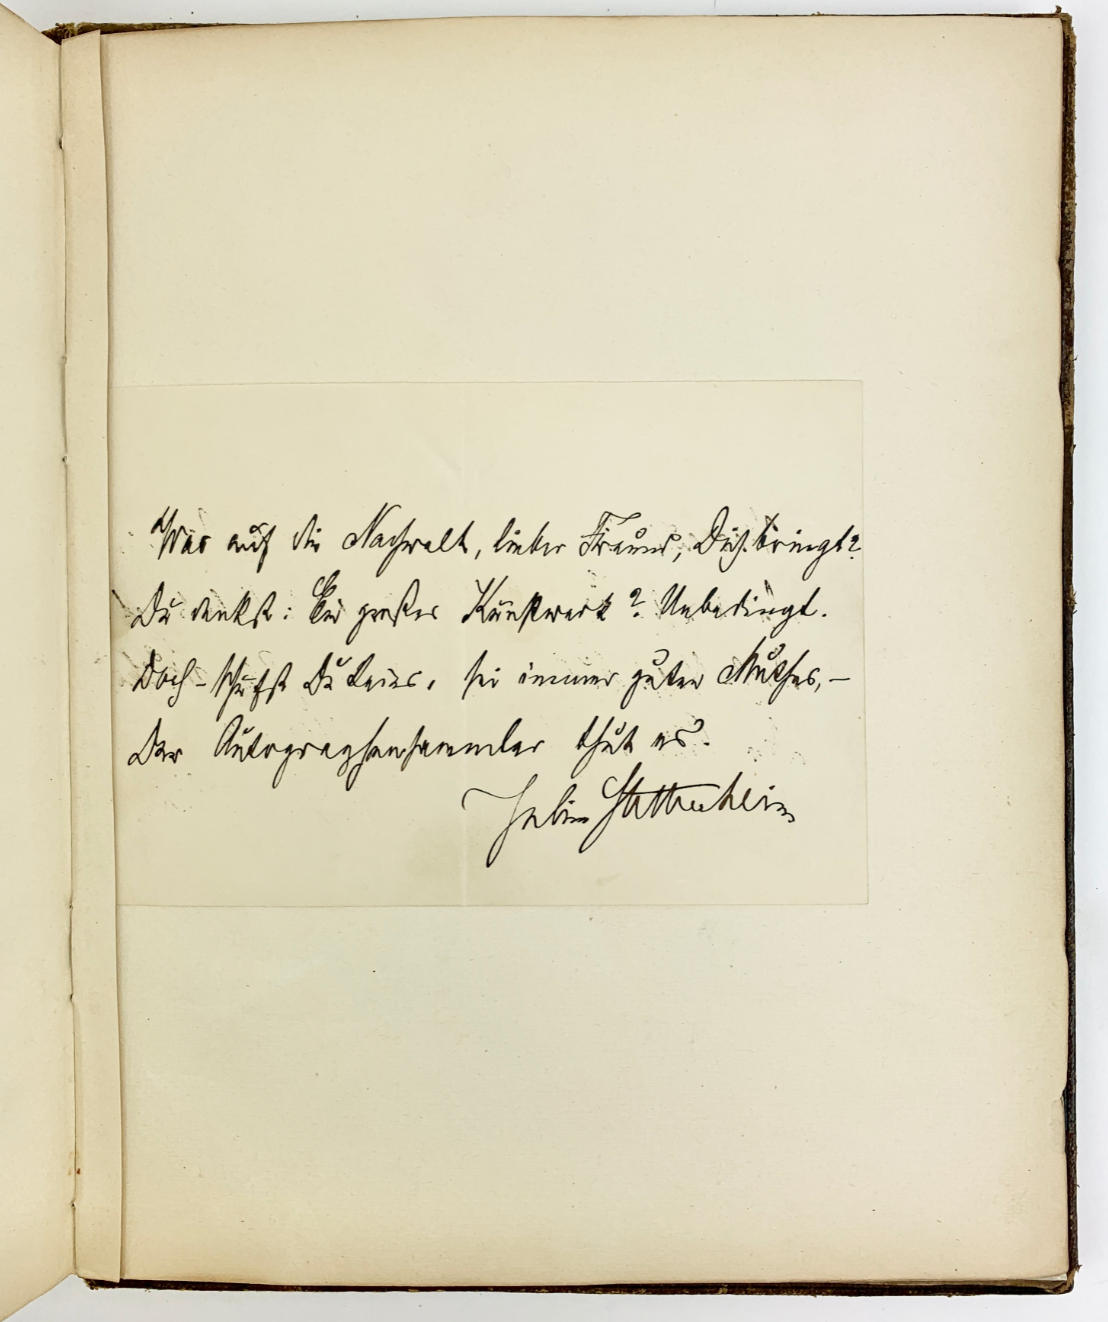 Was auf die Nachwelt, lieber Freund, Dich bringt?
Du denkst: Ein großes Kunstwerk? Unbedingt.
Doch – schufst Du keines, sei immer guten Muthes, –
Der Autographensammler thut es.
Julius Stettenheim